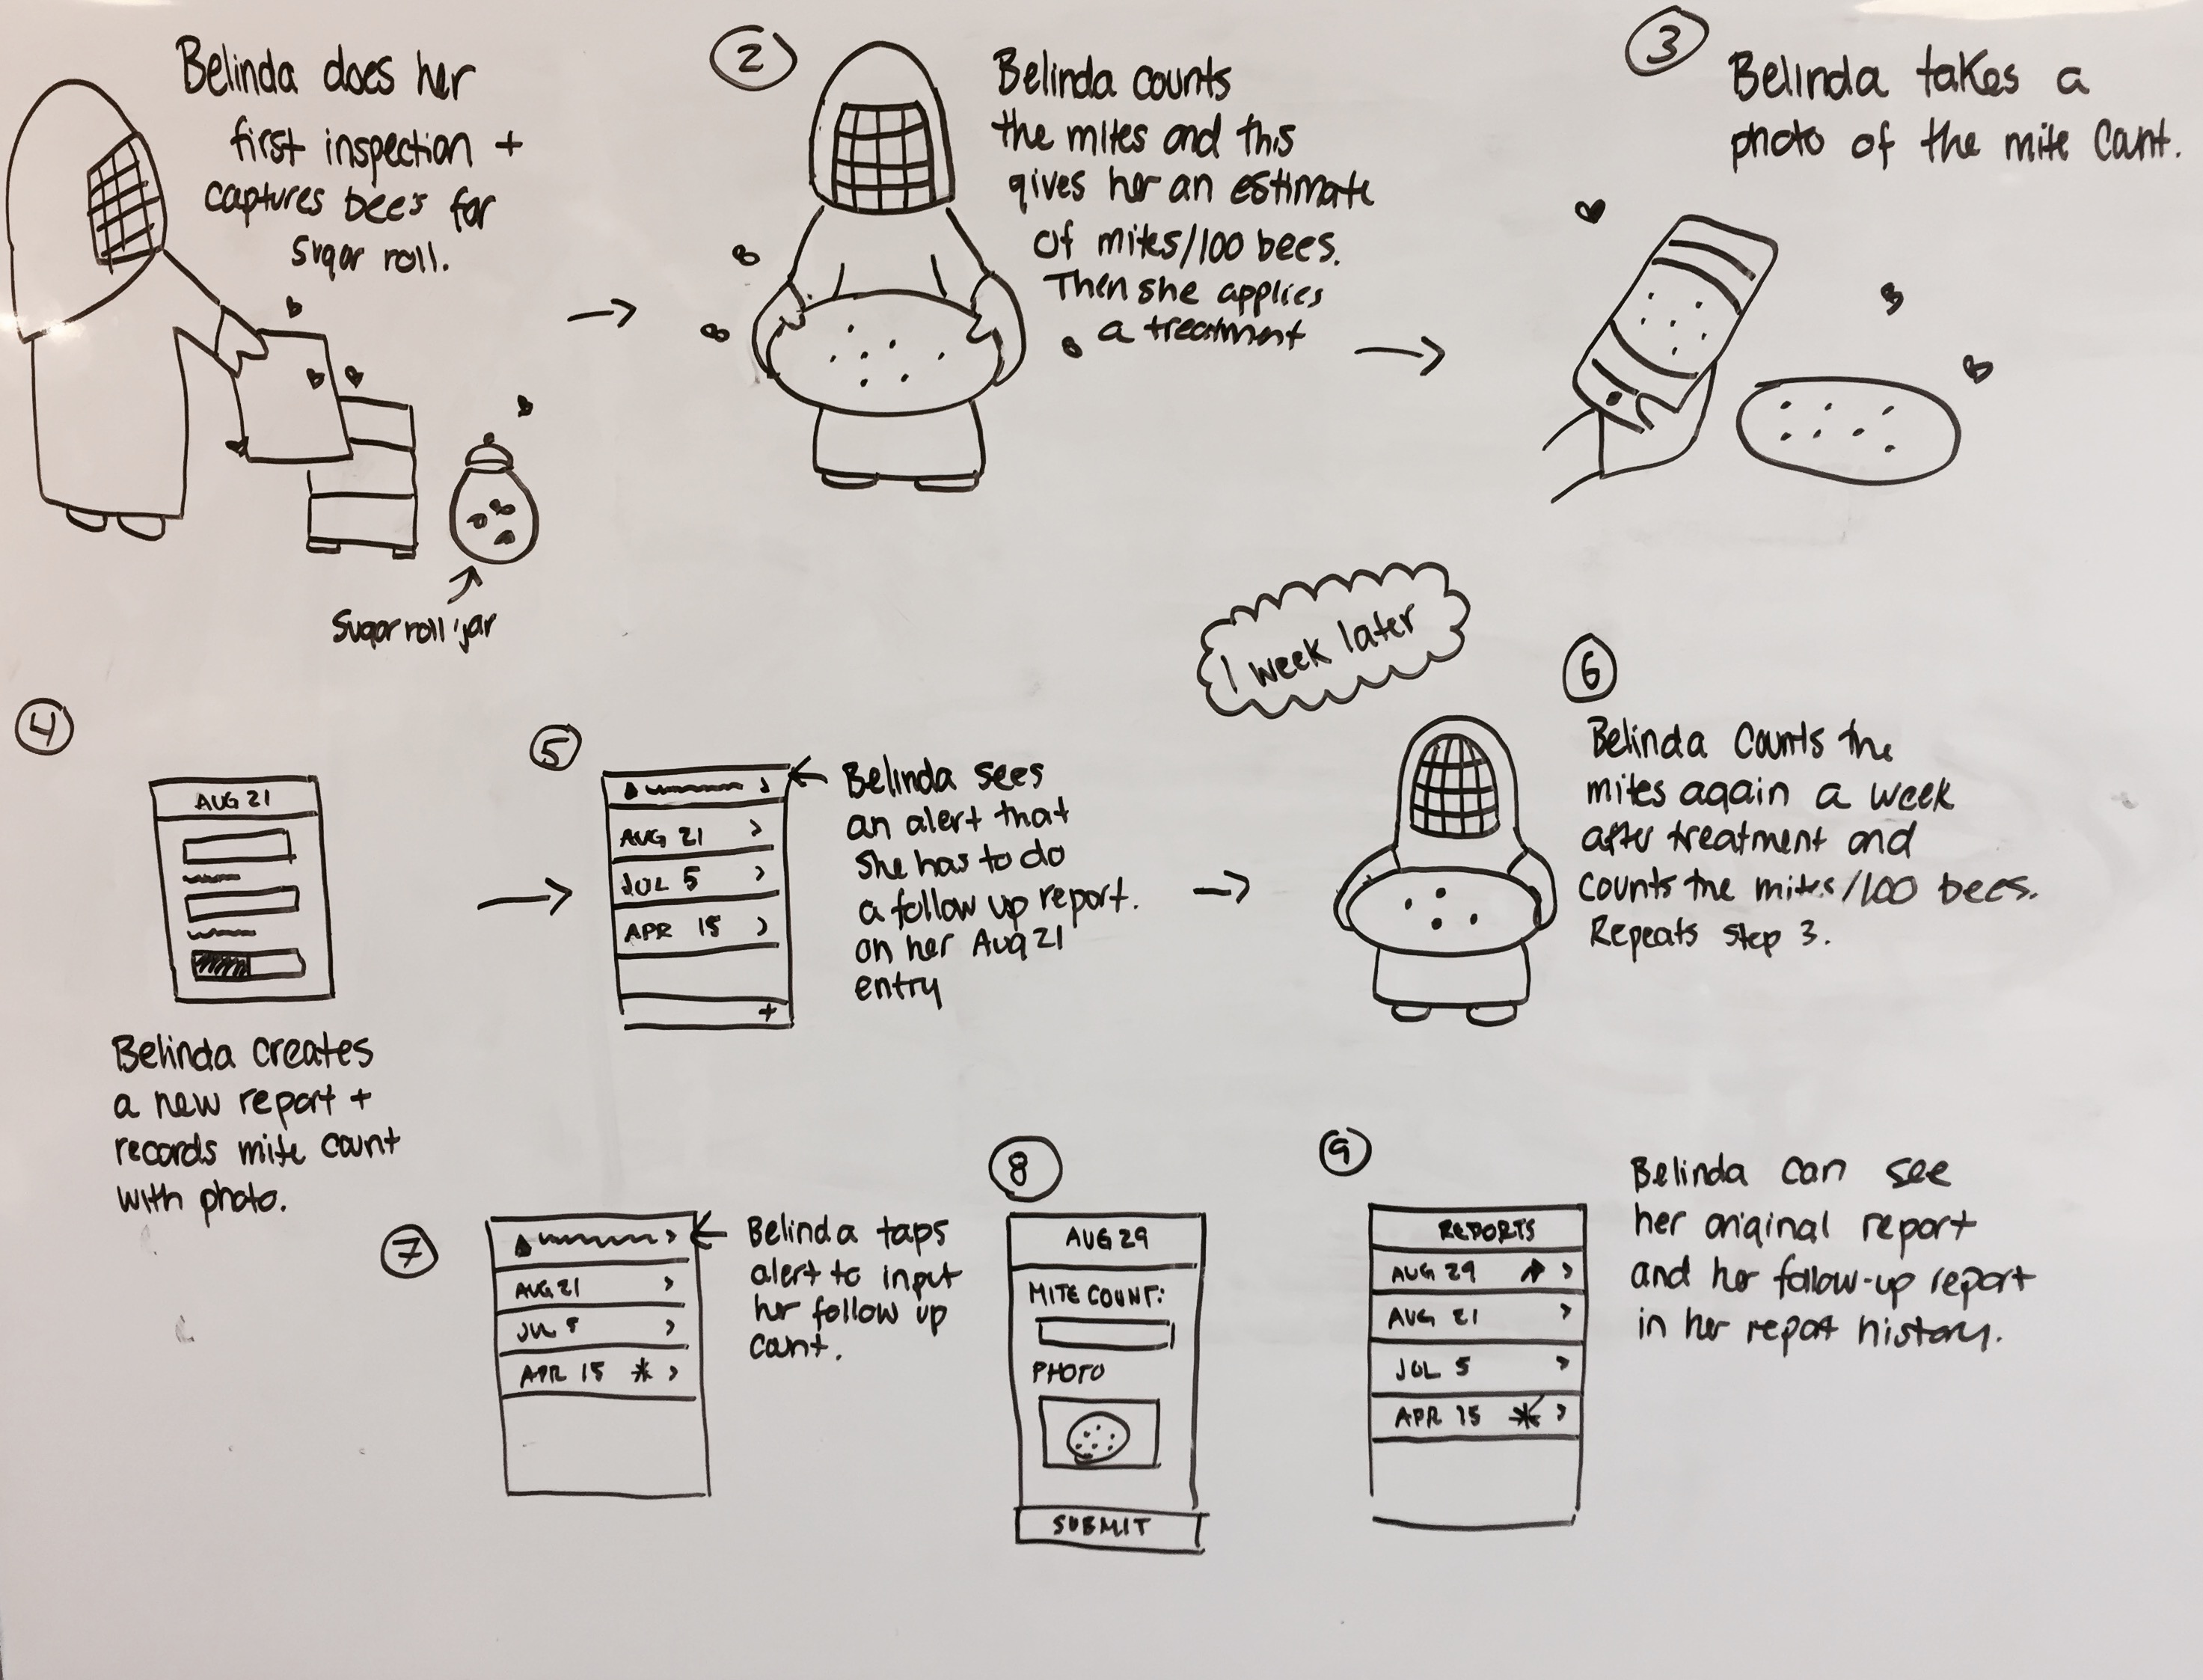 Belinda does her
first inspection +
captures bees for
Sugar roll.
Sugar roll jar
2
Belinda counts
the mites and this
gives her an estimate
of mites/100 bees.
Then she applies
a treatment
3
Belinda takes a
photo of the mite count.
4
AUG 21
Belinda creates
a new report +
records mite count
with photo.
5
AUG 21 >
JUL 5 >
APR 15 >
+
Belinda sees
an alert that
she has to do
a follow up report.
on her Aug 21
entry
1 week later
6
Belinda counts the
mites again a week
after treatment and
counts the mites/100 bees.
Repeats step 3.
7
>
AUG 21 >
JUL 5 >
APR 15 * >
Belinda taps
alert to input
her follow up
count.
8
AUG 29
MITE COUNT:
PHOTO
SUBMIT
9
REPORTS
AUG 29 >
AUG 21 >
JUL 5 >
APR 15 * >
Belinda can see
her original report
and her follow-up report
in her report history.